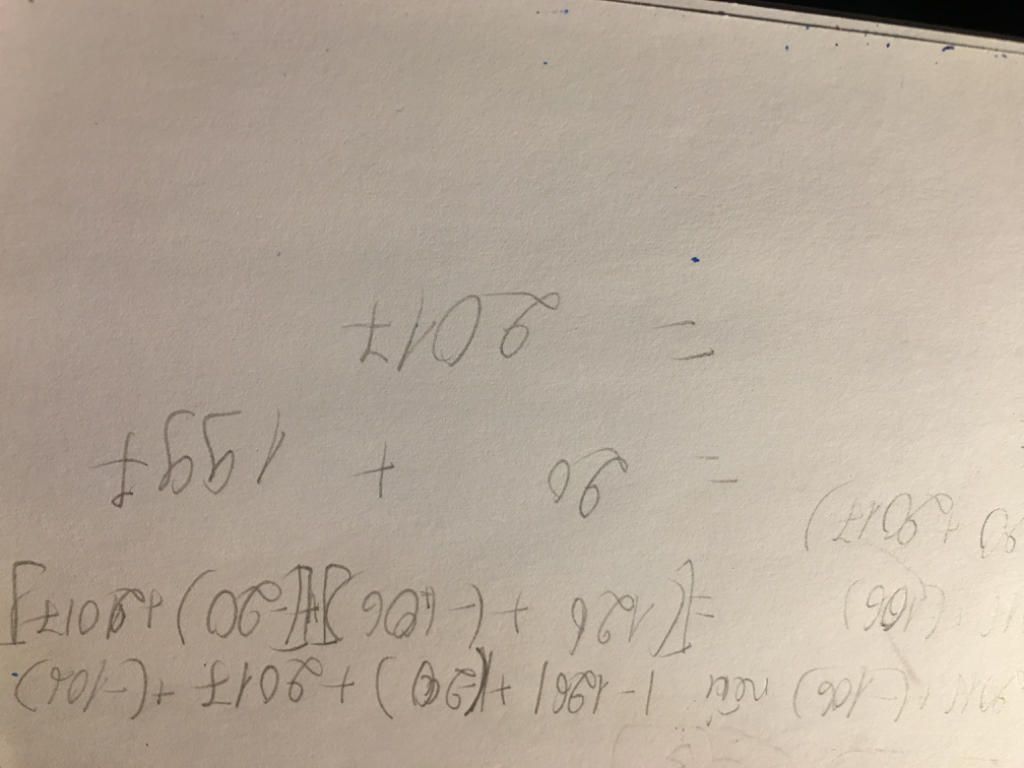 + (-106) nếu |-126| + (-20) + 2017 + (-106)
+ (106) = [126 + (-106)] + [(-20) + 2017]
20 + 2017)
= 20 + 1997
= 2017